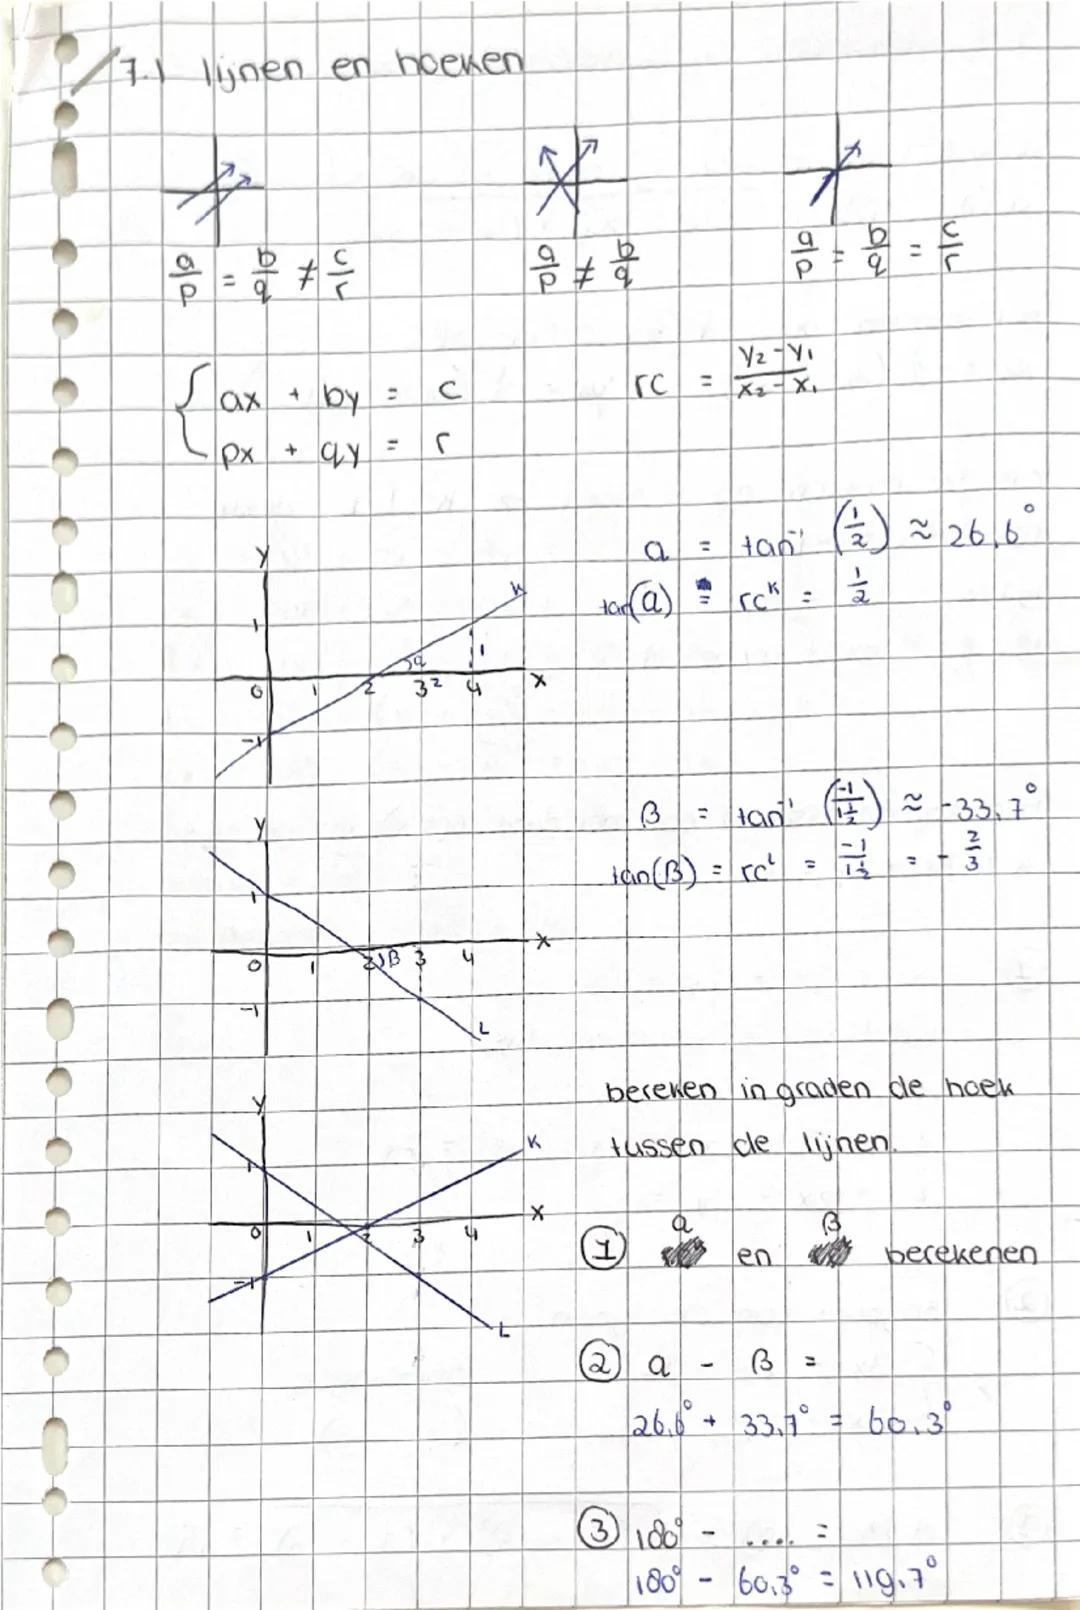 7.1 lijnen en hoeken
a/p = b/q ≠ c/r
a/p ≠ b/q
a/p = b/q = c/r
{ ax + by = c
px + qy = r
rc = y₂-y₁/x₂-x₁
a = tan⁻¹ (1/2) ≈ 26,6°
tan(a) = rcᴷ = 1/2
y
K
1
a
1
0 1 2 3 2 4 x
-1
B = tan⁻¹ (-1/1½) ≈ -33,7°
tan(B) = rcᴸ = -1/1½ = - 2/3
y
1
x
0 1 2 B 3 4
-1
L
bereken in graden de hoek
tussen de lijnen.
y
K
1
x
0 1 2 3 4
-1
L
① a en B berekenen
② a - B =
26,6° + 33,7° = 60,3°
③ 180° - .... =
180° - 60,3° = 119,7°